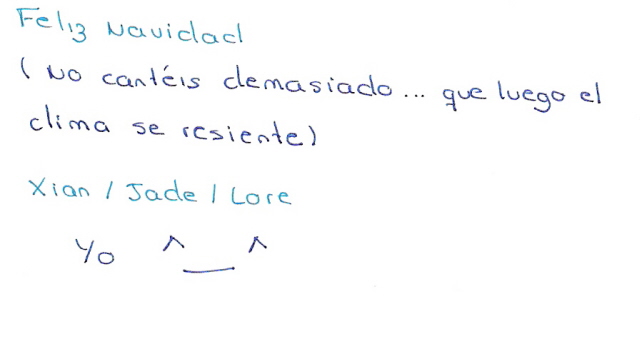 Feliz Navidad
(No cantéis demasiado... que luego el
clima se resiente)
Xian / Jade / Lore
Yo ^__^